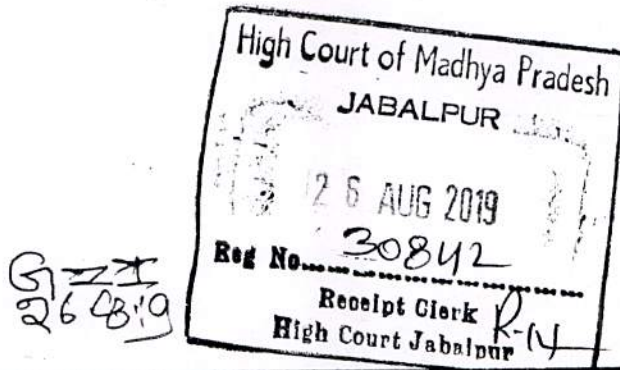 High Court of Madhya Pradesh
JABALPUR
26 AUG 2019
Reg No. 30842
Receipt Clerk R-14
High Court Jabalpur